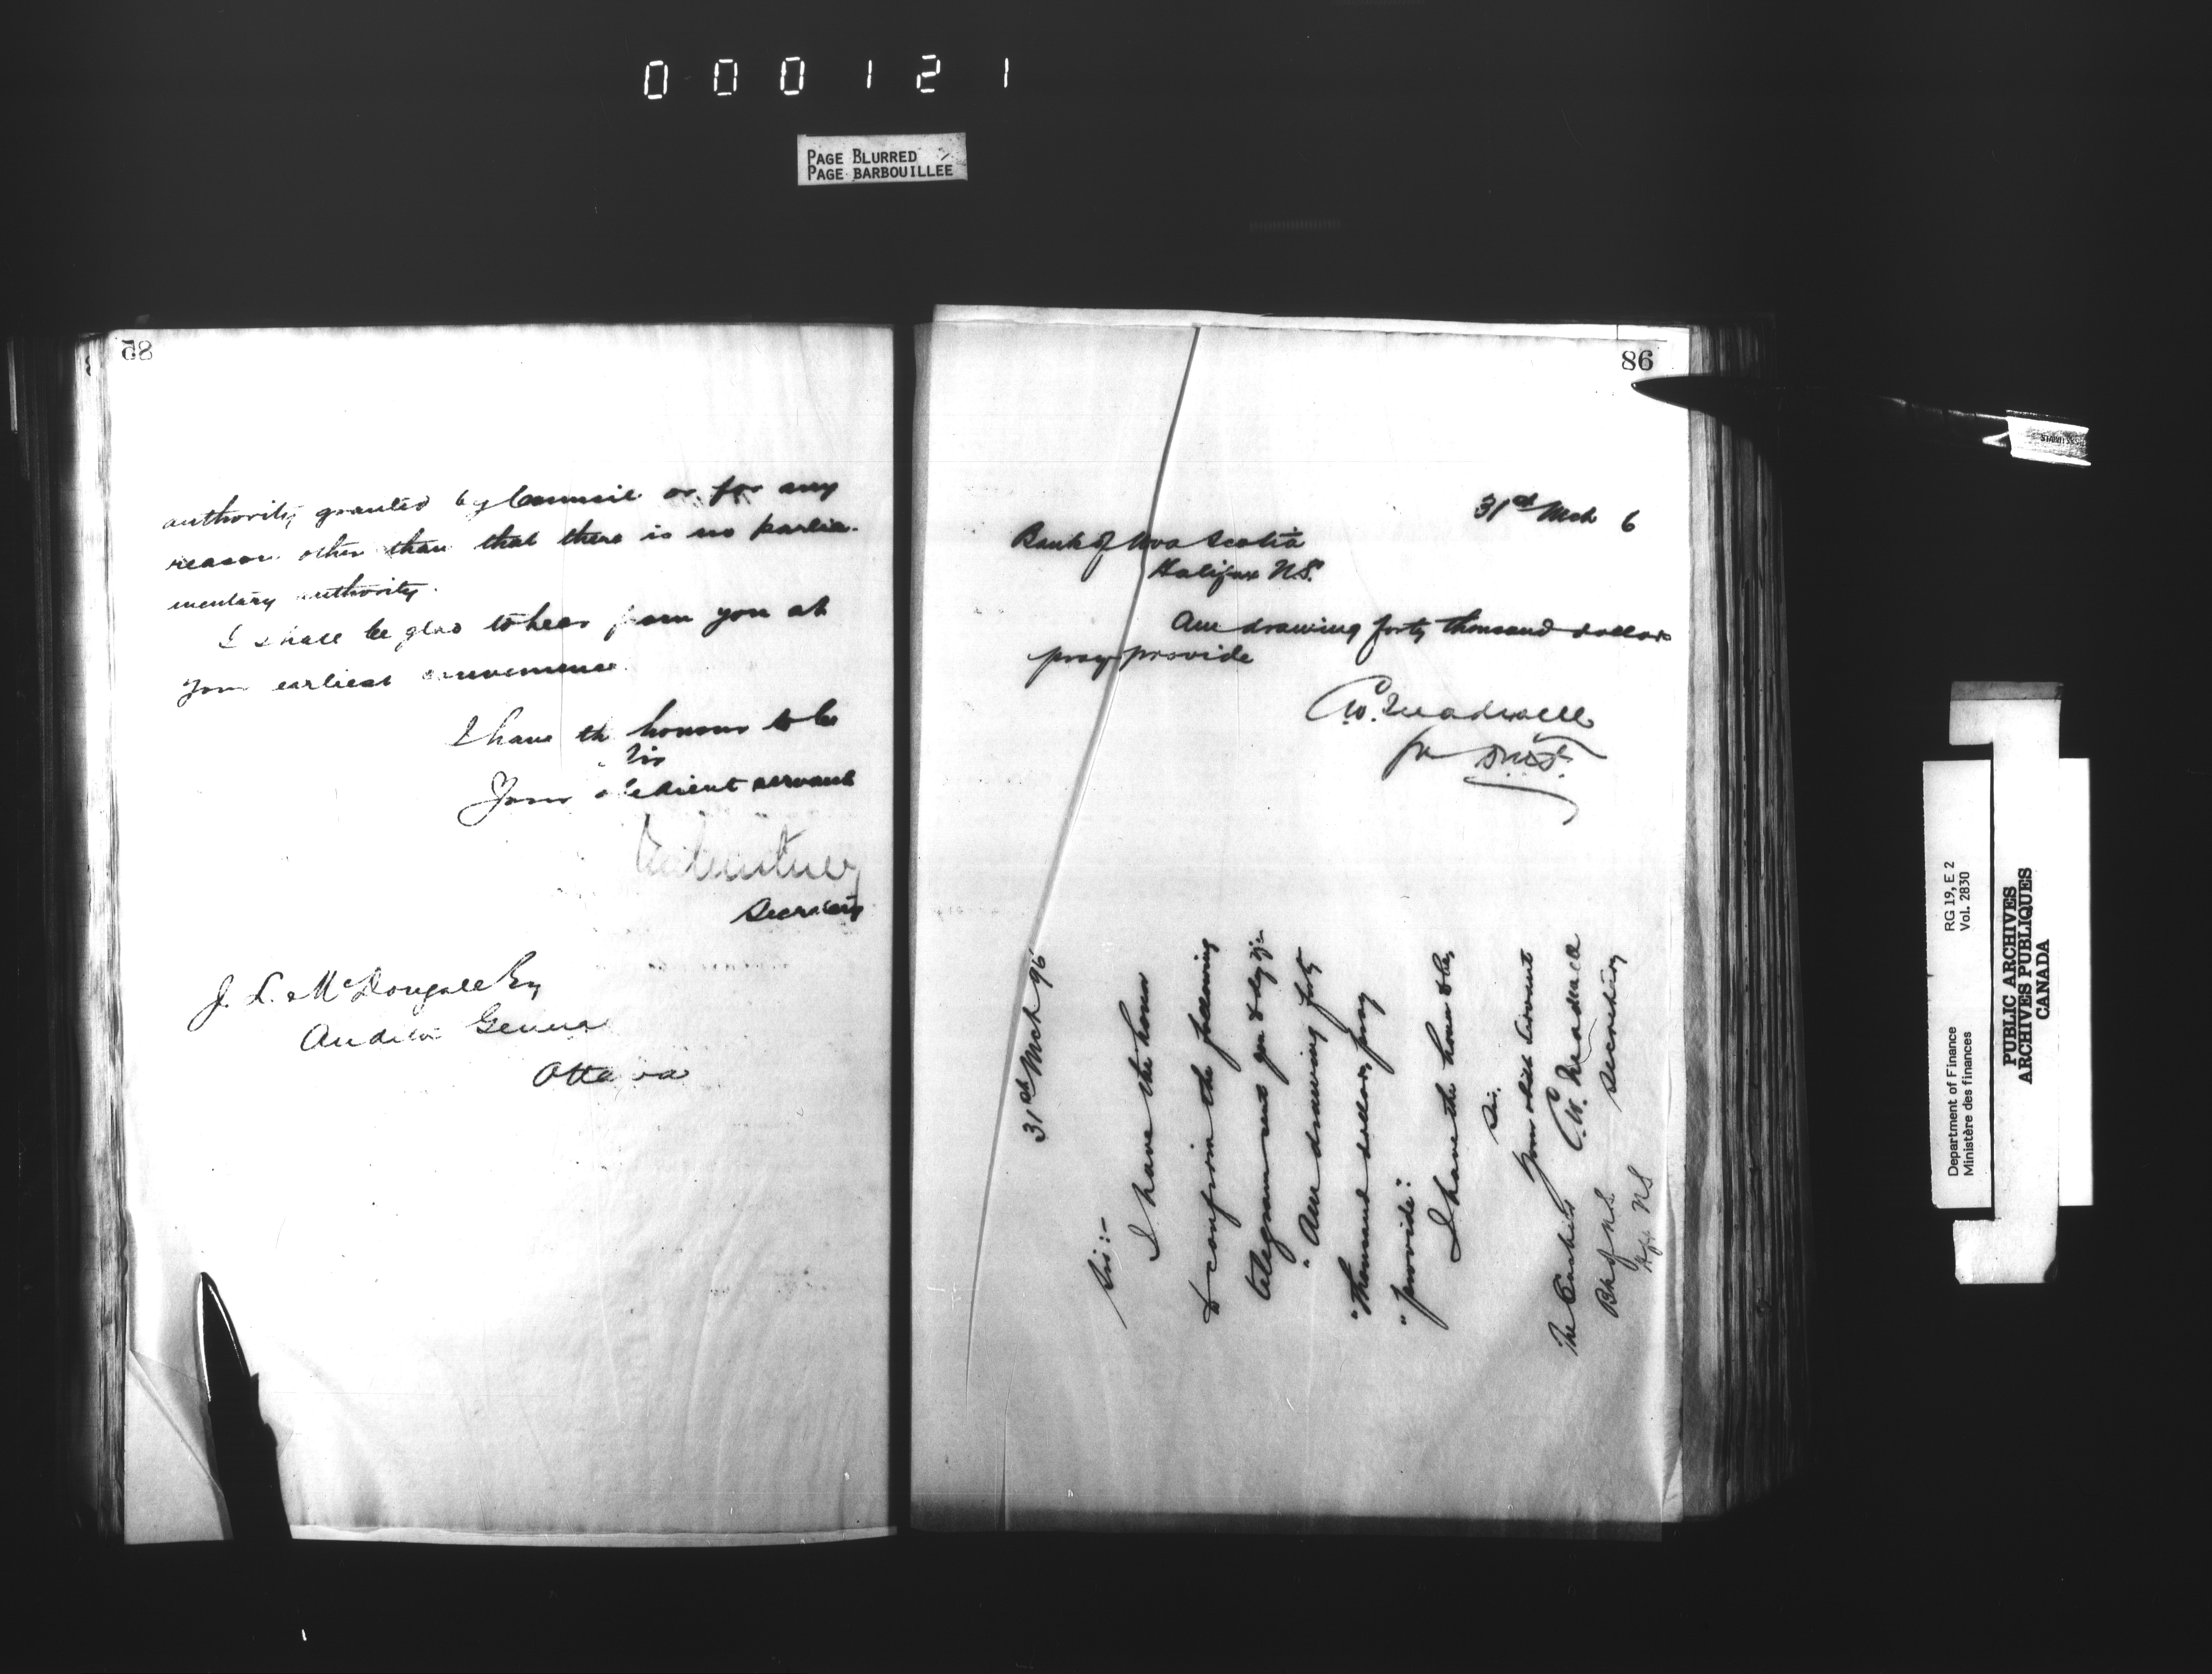 000121
PAGE BLURRED
PAGE BARBOUILLEE
85
authority granted by Council or for any
reason other than that there is no parlia-
mentary authority.
I shall be glad to hear from you at
your earliest convenience.
I have the honour to be
Sir
Your obedient servant
Secretary
J. L. McDougall Esq
Auditor General
Ottawa
86
31st Mch 6
Bank of Nova Scotia
Halifax N.S.
Am drawing forty thousand dollars
pray provide
C.W. Treadwell
for D.M.F.
31st Mch 96
Sir:-
I have the honor
to confirm the following
telegram sent you to day viz:
"Am drawing forty
"Thousand dollars, pray
"provide."
I have the honor to be,
Sir,
Your obdt Servant
C.W. Treadwell
Secretary
The Cashier
Bk of N.S.
Hfx NS
Department of Finance
Ministère des finances
RG 19, E 2
Vol. 2830
PUBLIC ARCHIVES
ARCHIVES PUBLIQUES
CANADA